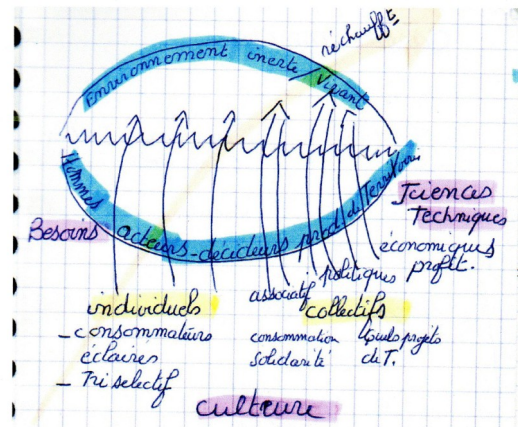 réchauff^t
Environnement inerte/Vivant
Hommes acteurs-décideurs prod de Territoire
Sciences
Techniques
Besoins
économiques
profit.
politiques
associatif
individuels
collectifs
- consommateurs
éclairés
- Tri selectif
consommation
solidarité
projets
de T.
culture